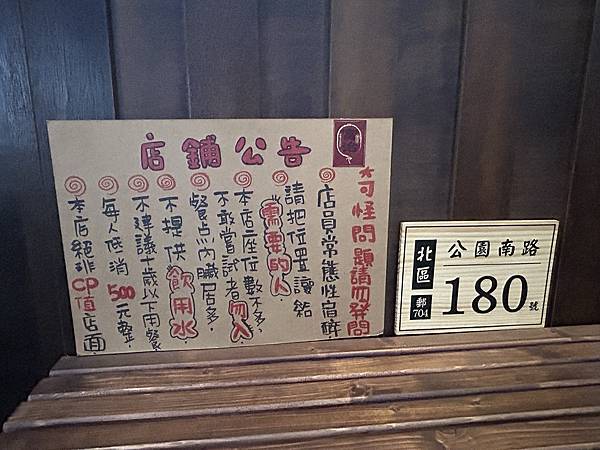 店鋪公告
*奇怪問題請勿發問
店員常態性宿醉,
請把位置讓給
需要的人
本店座位數不多,
不敢嘗試者勿入
餐点內臟居多,
不提供飲用水
不建議十歲以下用餐
每人低消500元整,
本店絕非CP值店面
北區
郵704
公園南路
180號